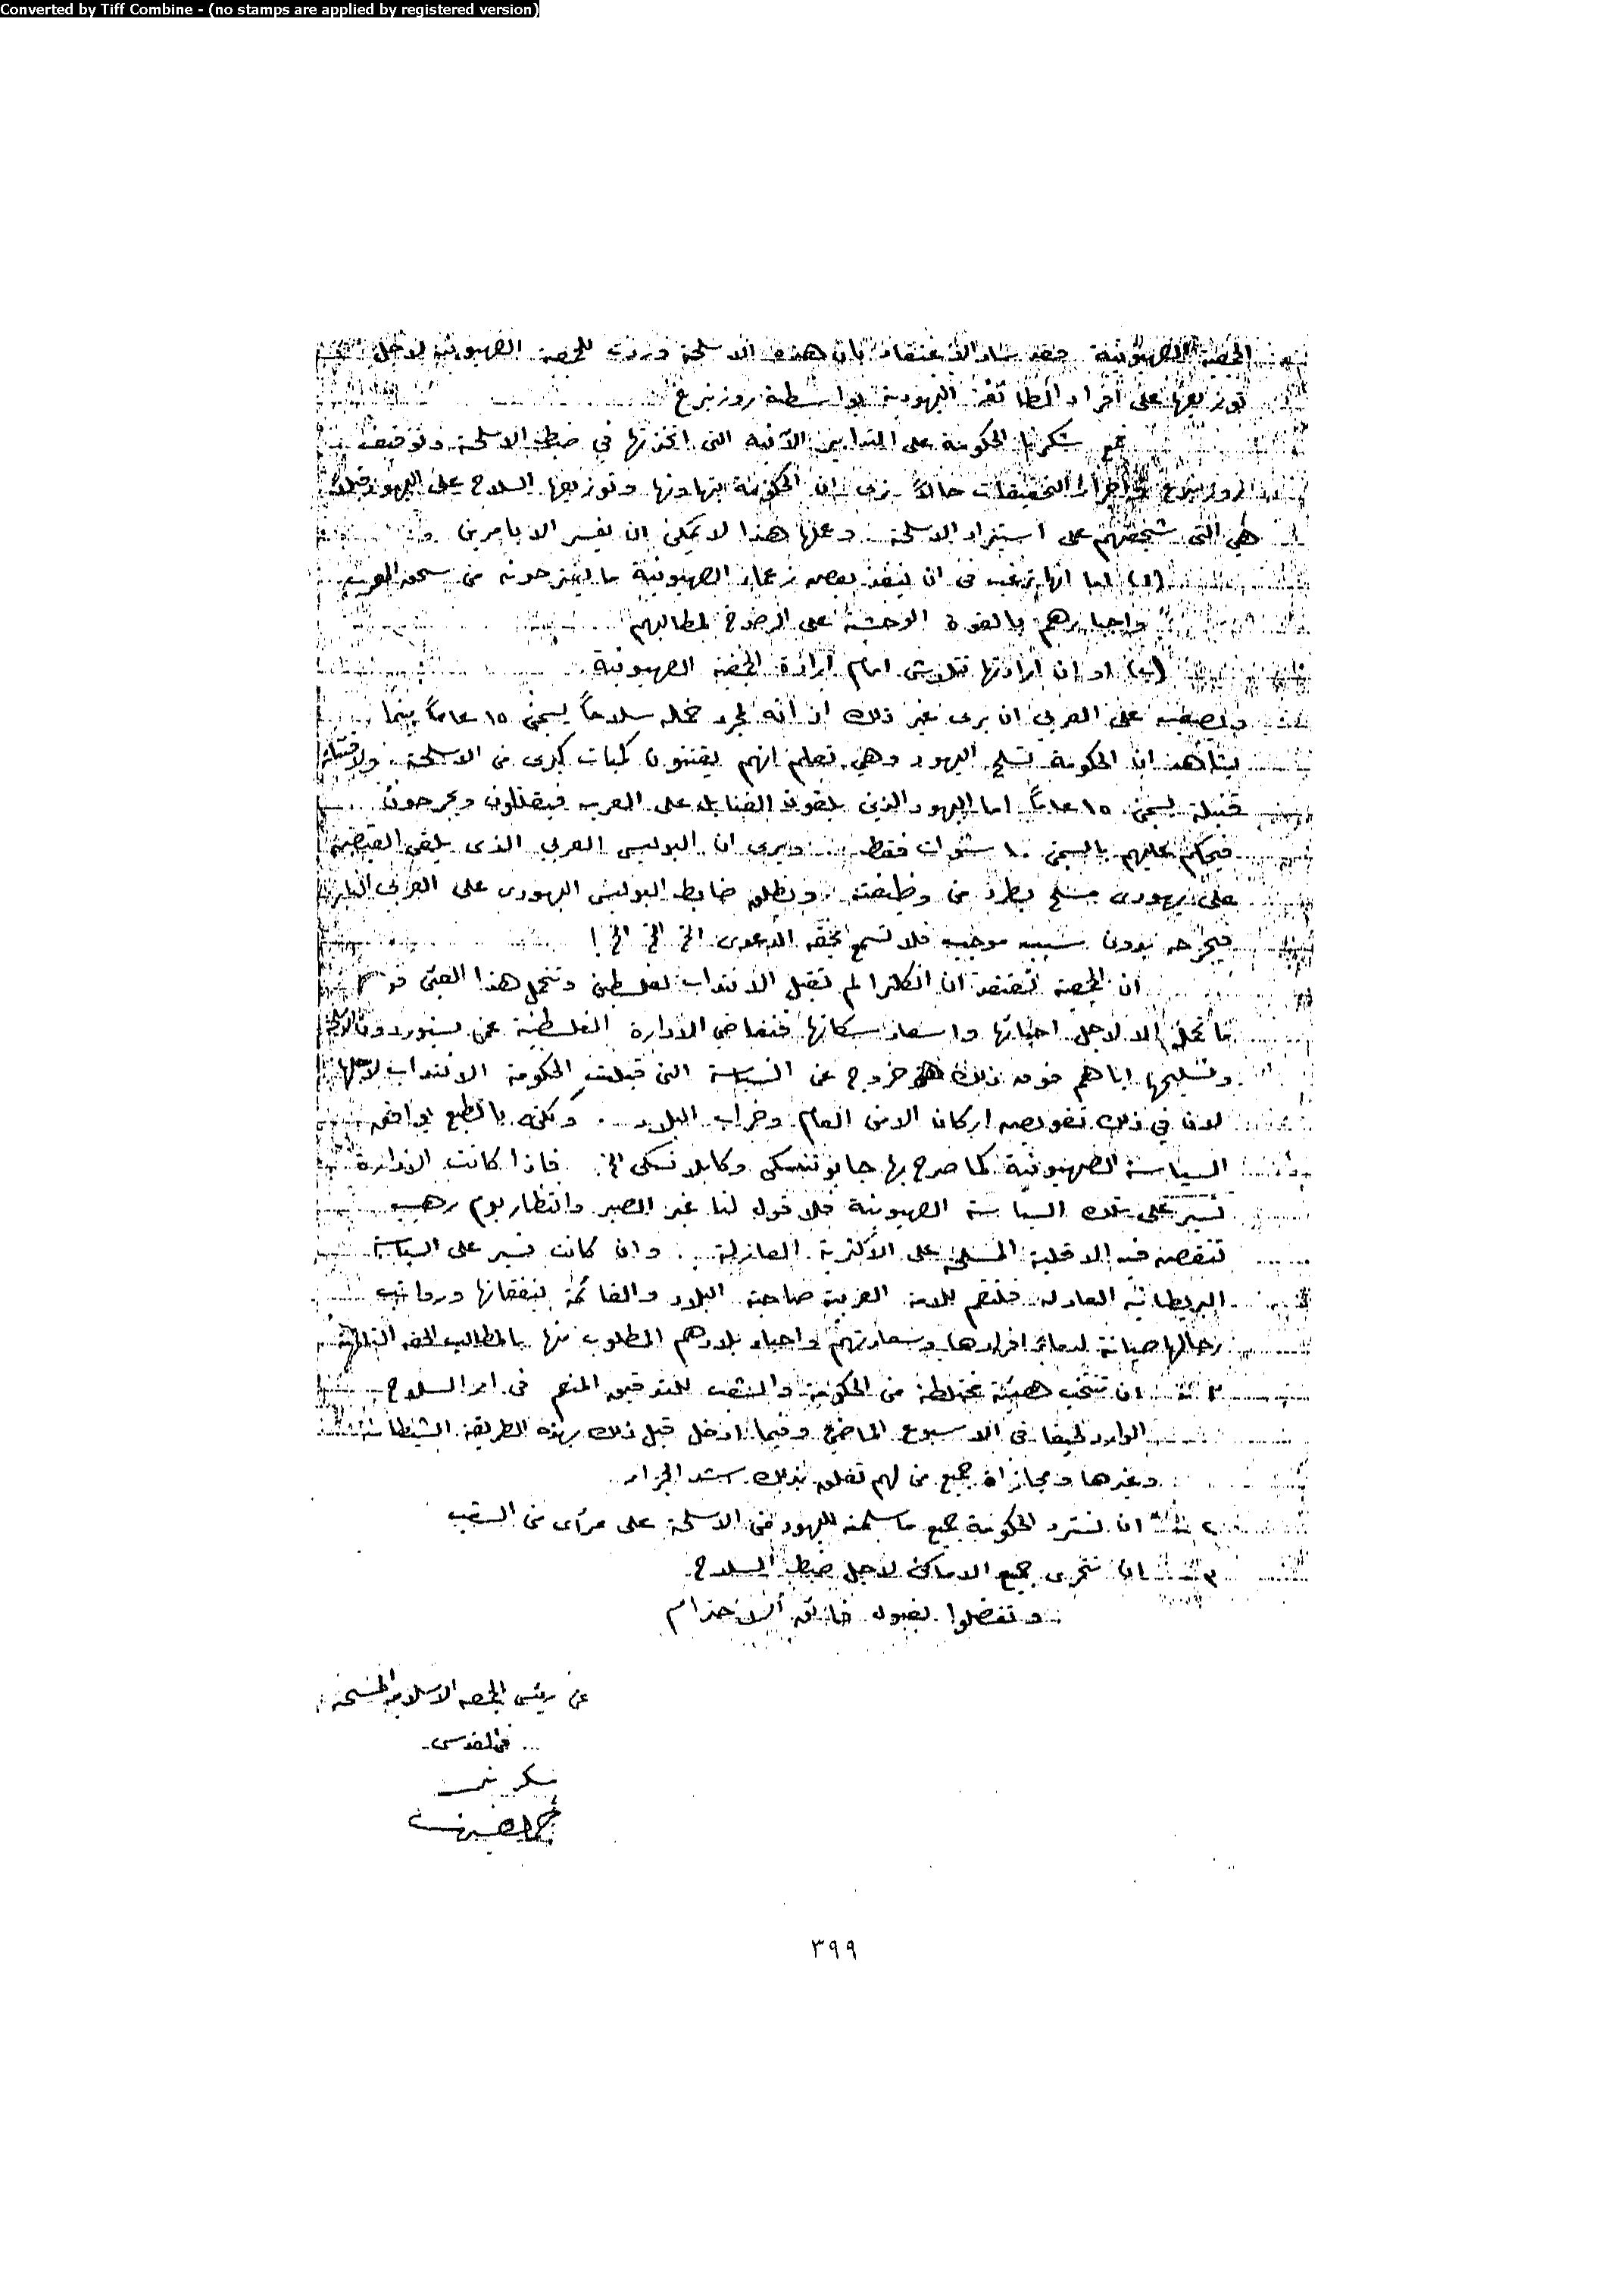 Converted by Tiff Combine - (no stamps are applied by registered version)
الجمعية الصهيونية فقد ساد الاعتقاد بان هذه الاسلحة وردت للجمعية الصهيونية لاجل
توزيعها على افراد الطائفة اليهودية بواسطة روزنبرغ
فمع شكرنا الحكومة على التدابير الآنية التى اتخذتها في ضبط الاسلحة وتوقيف
روزنبرغ التحقيقات حالاً نرى ان الحكومة بتهاونها وتوزيعها السلاح على اليهود قبلاً
هي التى شجعتهم على استيراد الاسلحة وعملها هذا لا يمكن ان يفسر الا بامرين
(١) اما انها ترغب فى ان ينفذ بعض زعماء الصهيونية ما يقترحونه من سحق العرب
واجبارهم بالقوة الوحشية على الرضوخ لمطاليبهم
(٢) او ان ارادتها تتلاشى امام ارادة الجمعية الصهيونية
ويصعب على العربي ان يرى غير ذلك اذ انه لمجرد حمله سلاحاً يسجن ١٥ عاماً بينما
يشاهد ان الحكومة تسلح اليهود وهي تعلم انهم يقتنون كميات كبرى من الاسلحة
قنبلة يسجن ١٥ عاماً اما اليهود الذين يلقون القنابل على العرب فيقتلون ويجرحون
فيحكم عليهم بالسجن ١٠ سنوات فقط ويرى ان البوليس العربي الذى يلقى القبض
على يهودى مسلح يطرد من وظيفته ويطلق ضابط البوليس اليهودى على العربي النار
فيجرحه بدون سبب موجب فلا تسمع بحقه الدعوى الخ الخ الخ !
ان الجمعية تعتقد ان انكلترا لم تقبل الانتداب لفلسطين وتتحمل هذا العبئ فوق
ما تحمل الا لاجل احيائها واسعاد سكانها فتغاضي الادارة الفلسطينية عمن يستوردون الاسلحة
وتسليحها اياهم فوق ذلك هو خروج عن السياسة التى قبلت الحكومة الانتداب لاجلها
لان في ذلك تقويض اركان الامن العام وخراب البلاد .. ولكنه بالطبع يوافق
السياسة الصهيونية كما صرح بها جابوتنسكى وكابلانسكى الخ. فاذا كانت الادارة
تسير على تلك السياسة الصهيونية فلا قول لنا غير الصبر وانتظار يوم رهيب
تنقض فيه الاقلية المسلحة على الأكثرية العازلة .. وان كانت تسير على السياسة
البريطانية العادلة فلتقم للامة العربية صاحبة البلاد والقائمة بنفقاتها ورواتب
رجالها صيانة لدماء افرادها وسعادتهم واحياء بلادهم المطلوب منها بالمطاليب الحقة التالية
١ ان تنتخب هيئة مختلطة من الحكومة والشعب للتدقيق فى امر السلاح
الوارد لحيفا فى الاسبوع الماضي وفيما ادخل قبل ذلك بهذه الطريقة الشيطانية
وغيرها ومجازاة جميع من لهم تعلق بذلك اشد الجزاء
٢ ان تسترد الحكومة جميع ما سلمته لليهود من الاسلحة على مرأى من الشعب
٣ ان تتحرى جميع الاماكن لاجل ضبط السلاح
وتفضلوا بقبول فائق الاحترام
عن رئيس الجمعية الاسلامية المسيحية
فى القدس
سكرتيرـ
٣٩٩